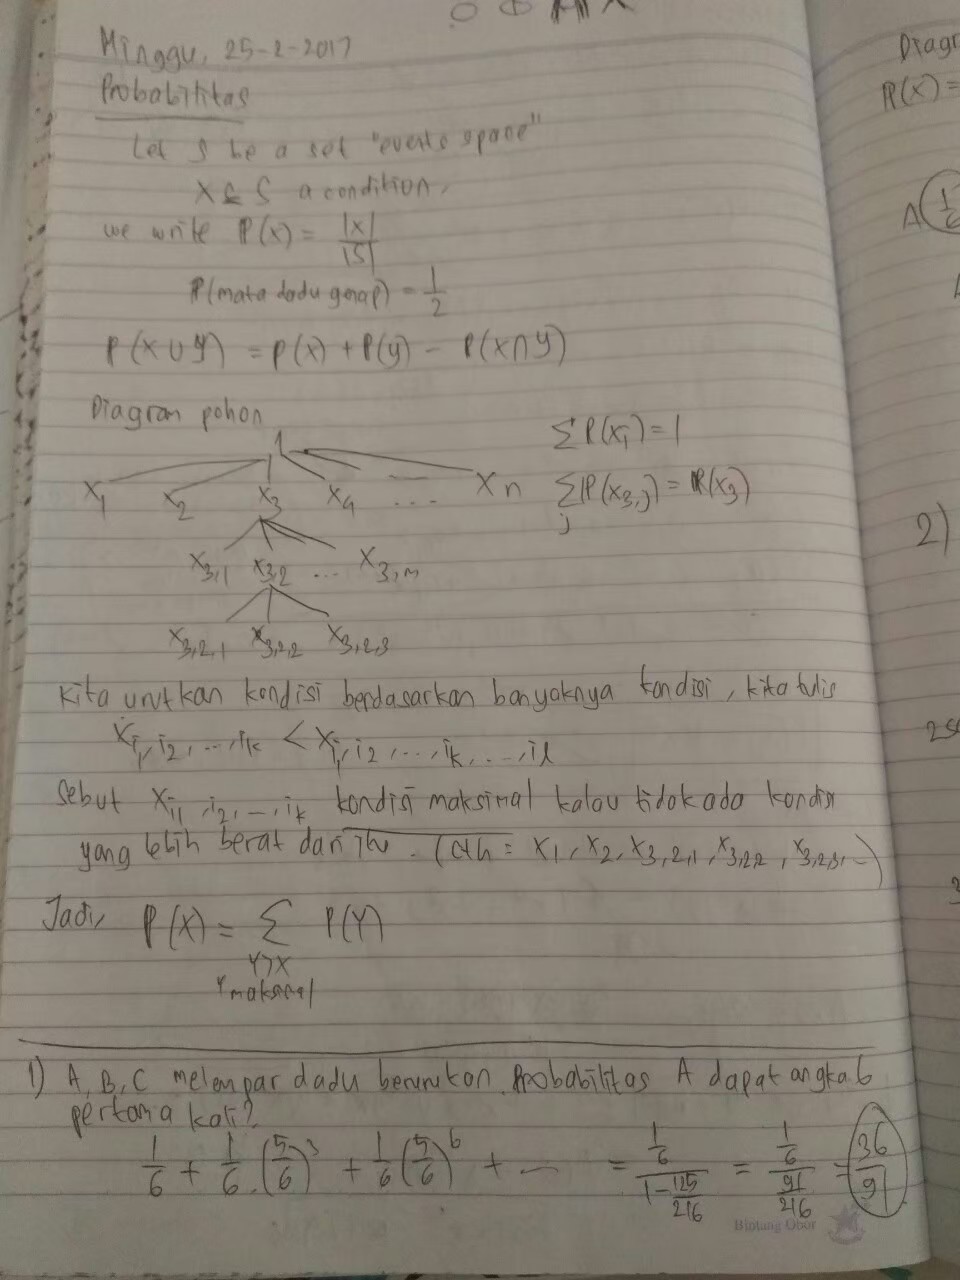 Minggu, 25-2-2017
Probabilitas
Let S be a set "events space"
X ⊆ S a condition,
we write P(x) = |x| / |S|
P(mata dadu genap) = 1/2
P(X ∪ Y) = P(x) + P(y) - P(X ∩ Y)
Diagram pohon
1
X₁ X₂ X₃ X₄ ... Xn
Σ P(xᵢ) = 1
Σⱼ P(x₃,ⱼ) = P(x₃)
X₃,₁ X₃,₂ ... X₃,ₘ
X₃,₂,₁ X₃,₂,₂ X₃,₂,₃
Kita urutkan kondisi berdasarkan banyaknya kondisi, kita tulis
X i₁, i₂, ..., iₖ < X i₁, i₂, ..., iₖ, ..., iℓ
Sebut X i₁, i₂, ..., iₖ kondisi maksimal kalau tidak ada kondisi
yang lebih berat dari itu. (cth = X₁, X₂, X₃,₂,₁, X₃,₂,₂, X₃,₂,₃, ...)
Jadi, P(X) = Σ P(Y)
Y > X
Y maksimal
1) A, B, C melempar dadu berurutan. Probabilitas A dapat angka 6
pertama kali?
1/6 + 1/6 . (5/6)³ + 1/6 (5/6)⁶ + ... = (1/6) / (1 - 125/216) = (1/6) / (91/216) = 36/91
Bintang Obor
Diagr
P(x) =
A 1/6
2)